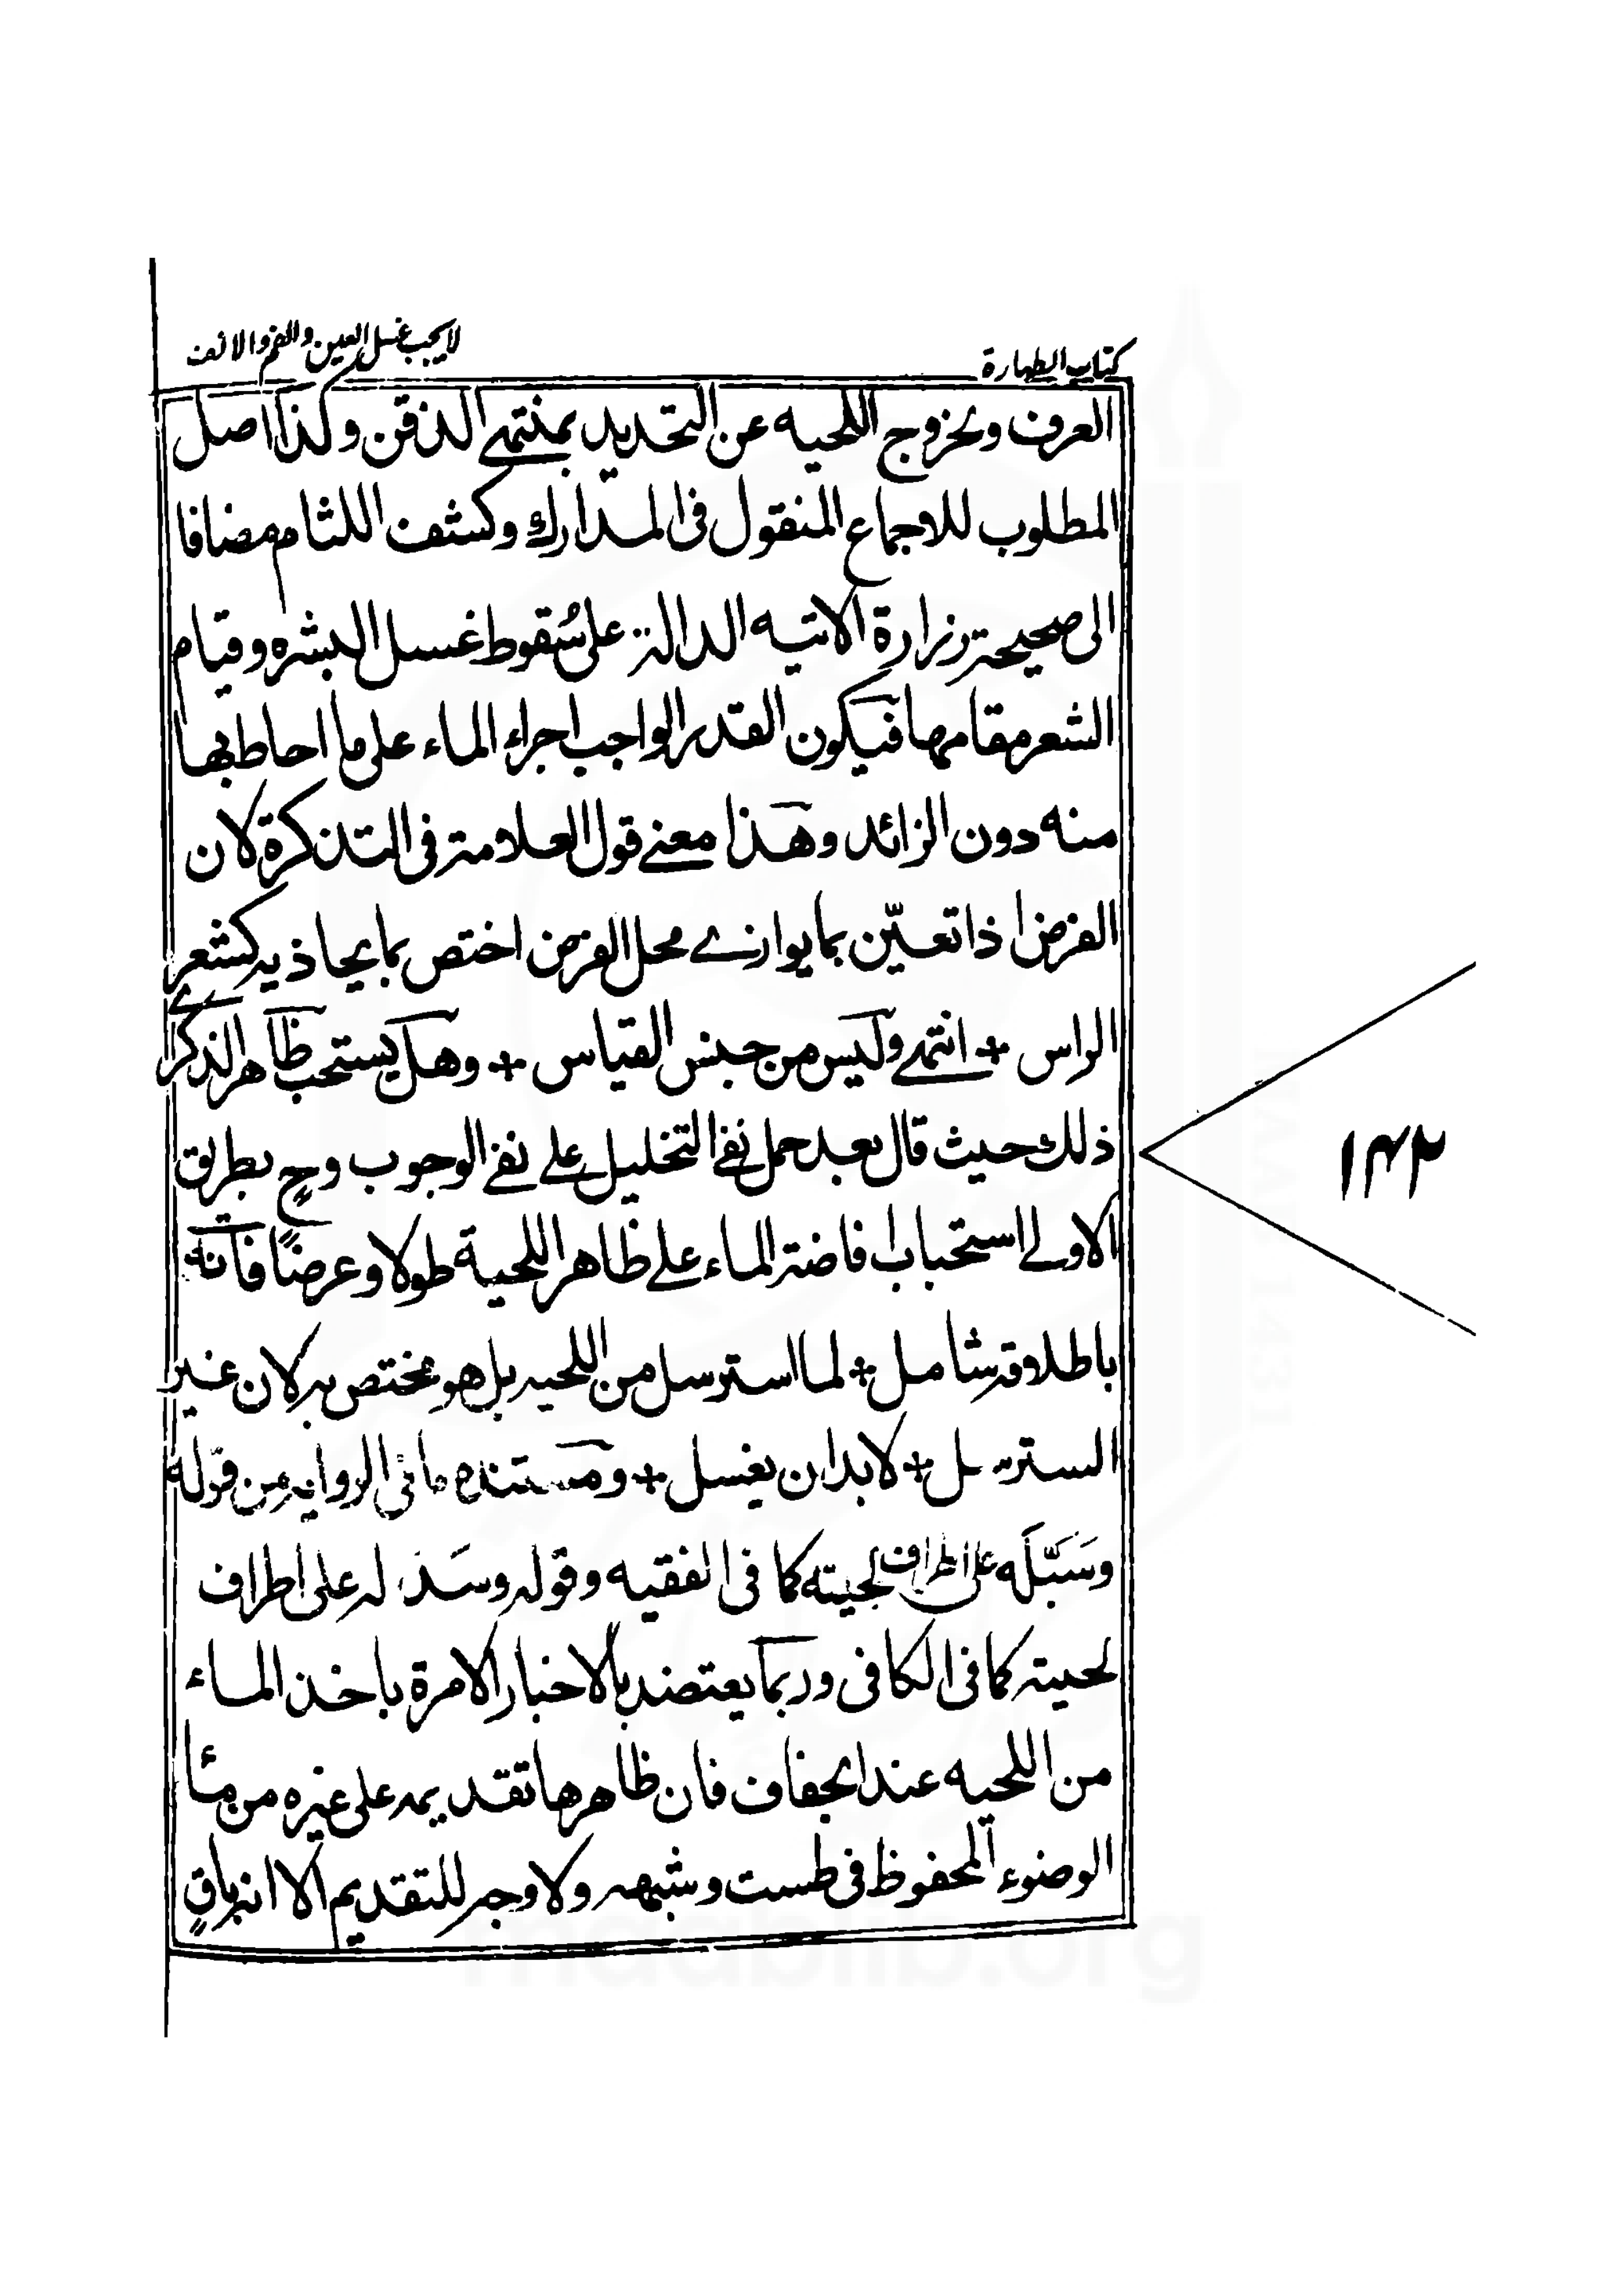 كتاب الطهارة
لا يجب غسل العين والفم والانف
العرف وبخروج اللحيه عن التحديد بمنتهى الذقن وكذا اصل
المطلوب للاجماع المنقول فى المدارك وكشف اللثام مضافا
الى صحيحة زرارة الاتيه الدالة على سُقوط غسل البشره وقيام
الشعر مقامها فيكون القدر الواجب اجراء الماء على ما احاط بها
منه دون الزائد وهذا معنے قول العلامة فى التذكرة لان
الفرض اذا تعيّن بما يوازے محل الفرض اختص بما يحاذيه كشعر
الراس + انتهے وليس من جنس القياس + وهل يستحب ظاهر الذكرے
ذلك حيث قال بعد حمل نفے التخليل علے نفے الوجوب وحٍ بطريق
الاولے استحباب افاضة الماء علے ظاهر اللحية طولا وعرضًا فانه
باطلاقه شامل + لما استرسل من اللحيه بل هو مختص به لان غير
المسترسل + لابد ان يغسل + ومستنده ما فى الروايه من قوله
وسَبّله على اطراف لحيته كما فى الفقيه وقوله وسَدَله على اطراف
لحيته كما فى الكافى وربما يعتضد بالاخبار الامرة باخذ الماء
من اللحيه عند الجفاف فان ظاهرها تقديمه على غيره من ماء
الوضوء المحفوظ فى طست وشبهه ولا وجه للتقديم الا انه باقٍ
۱۴۲
maablib.org